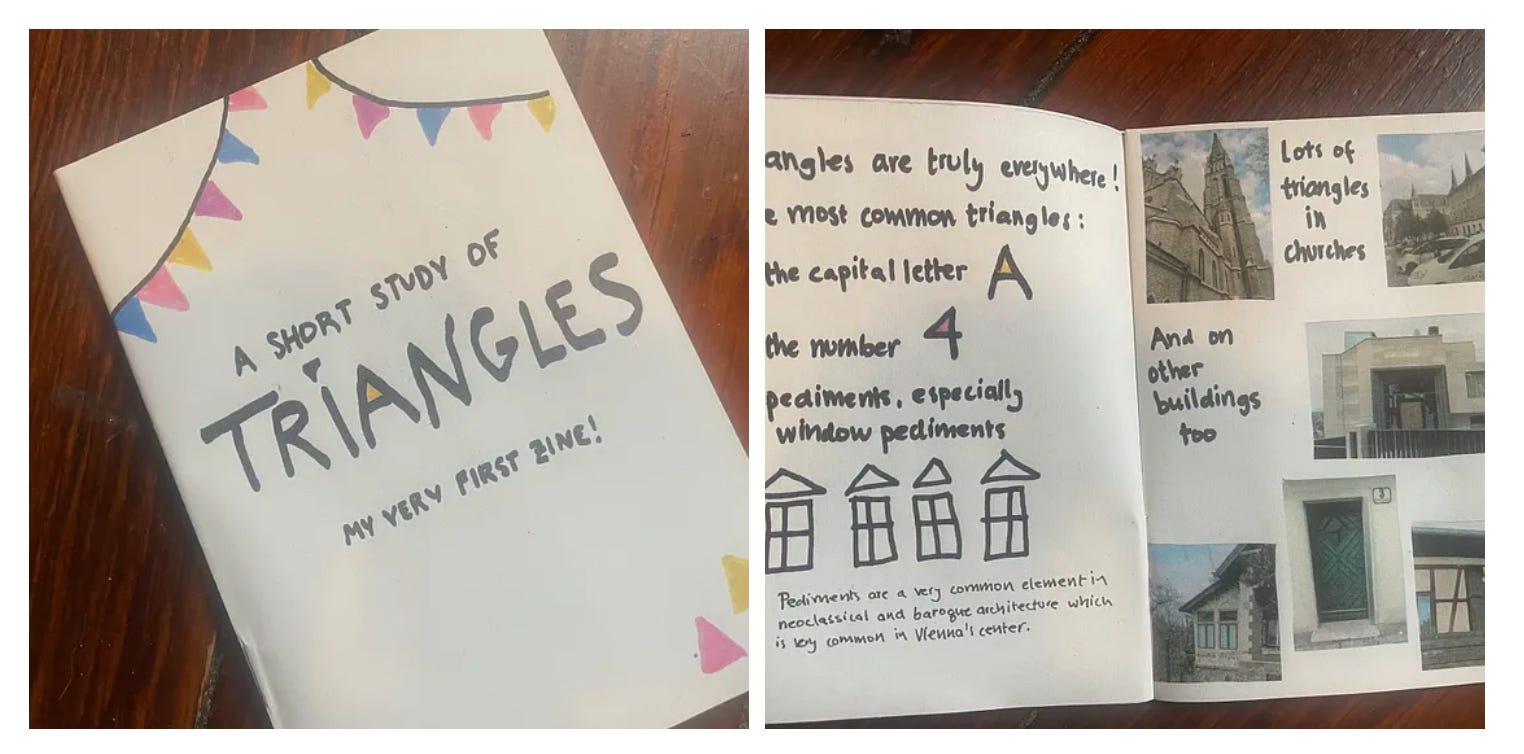 A SHORT STUDY OF
TRIANGLES
MY VERY FIRST ZINE!
angles are truly everywhere!
e most common triangles:
the capital letter A
the number 4
pediments, especially
window pediments
Pediments are a very common element in
neoclassical and baroque architecture which
is very common in Vienna's center.
Lots of
triangles
in
churches
And on
other
buildings
too
3